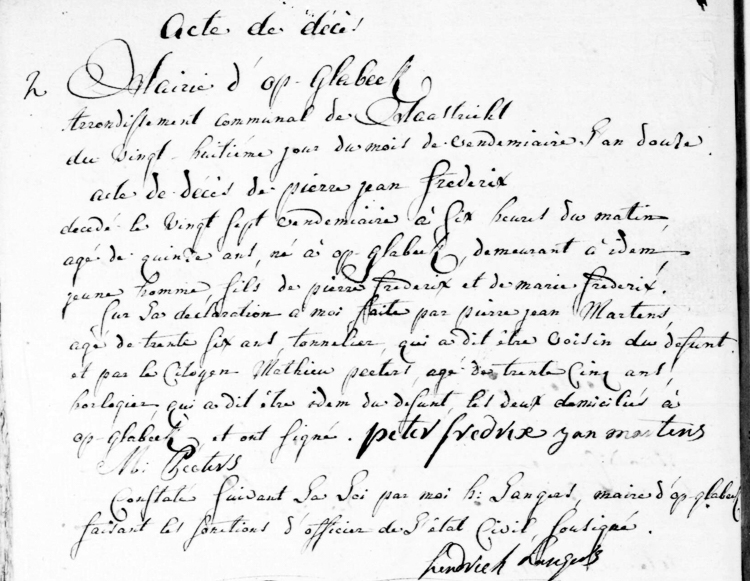 Acte de décès
2 Mairie d'op-glabeek
Arrondissement communal de Maastricht
du vingt-huitième jour du mois de vendemiaire L'an douze.
acte de décès de pierre jean frederix
decedé le vingt sept vendemiaire à six heures du matin,
agé de quinze ans, né à op-glabeek, demeurant à idem,
jeune homme, fils de pierre frederix et de marie frederix.
Sur La declaration a moi faite par pierre jean Martens,
agé de trente six ans tonnelier, qui a dit être voisin du defunt.
et par le Citoyen Mathieu peeters, agé de trente Cinq ans,
horlogier, qui a dit être idem du defunt, les deux domiciliés à
op-glabeek, et ont signé. peter fredrix yan martens
M: Peeters
Constaté suivant La Loi par moi h: Langers, maire d'op-glabeek
faisant les fonctions d'officier de L'état Civil, soussigné.
hendrick Langers